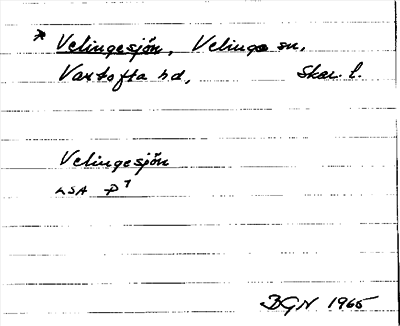 * Velingesjön, Velinge sn,
Vartofta hd, Skar. l.
Velingesjön
LSA P 7
BGN 1965